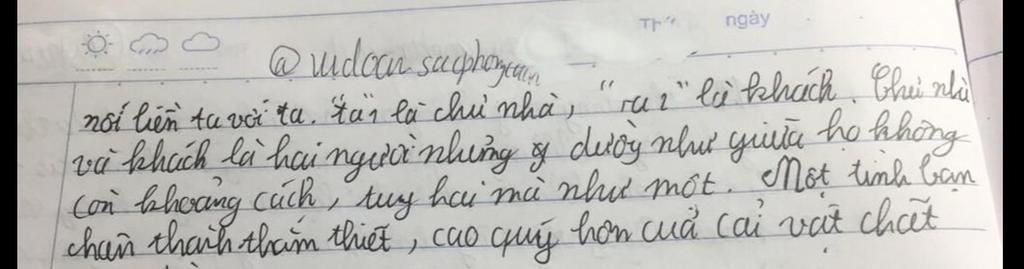 Thứ ngày
nối liền ta với ta. "ta" là chủ nhà, "ta" là khách. Chủ nhà
và khách là hai người nhưng dường như giữa họ không
còn khoảng cách, tuy hai mà như một. Một tình bạn
chân thành thắm thiết, cao quý hơn của cải vật chất